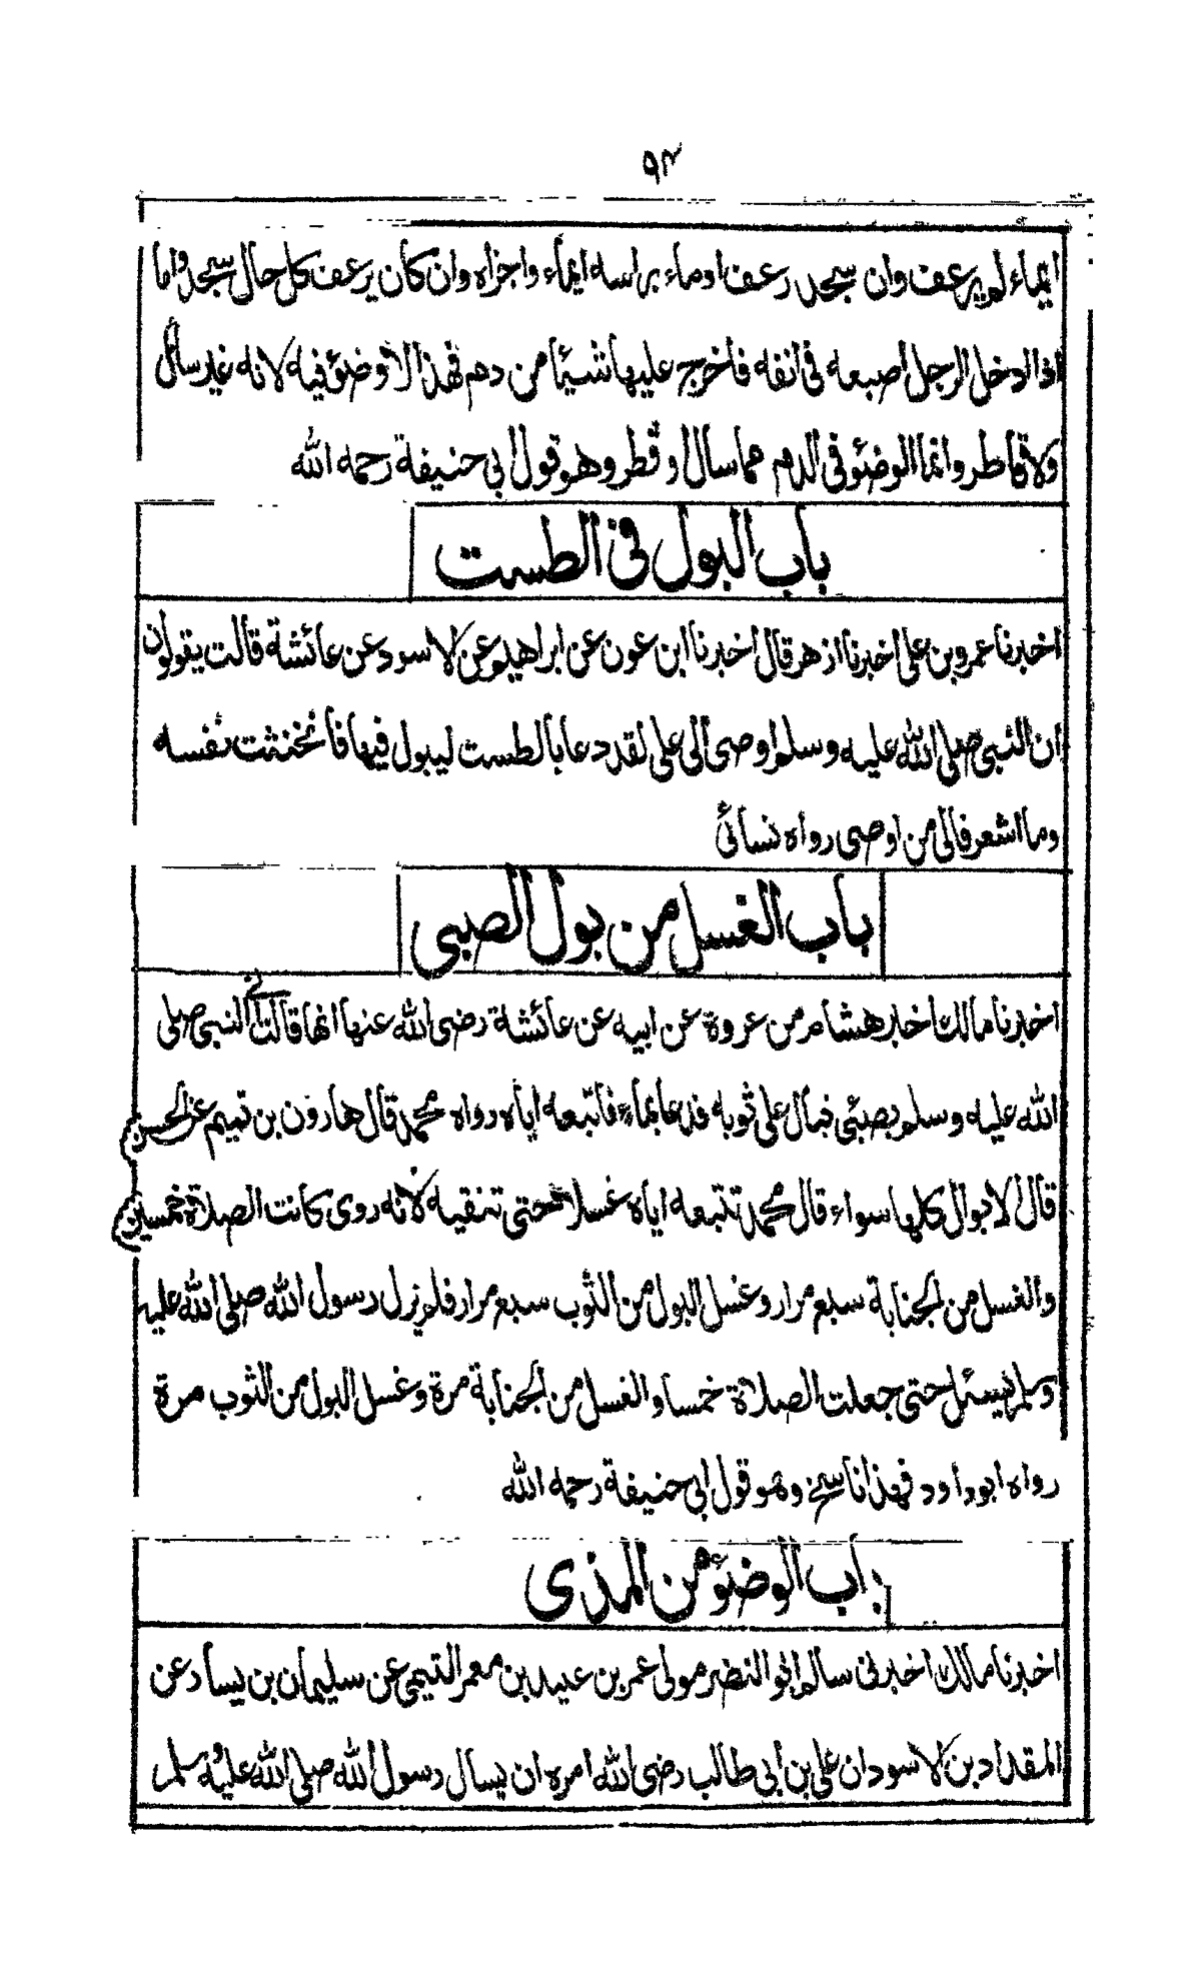 ٩٢
ايماء لم يرعف وان سجد رعف اوماء براسه ايماء واجزاه وان كان يرعف كل حال سجد واما
اذا ادخل الرجل اصبعه فى انفه فاخرج عليها شيئا من دم فهذا لا وضوء فيه لانه غير سائل
ولا قاطر وانما الوضوء فى الدم مما سال او قطر وهو قول ابى حنيفة رحمه الله
باب البول فى الطست
اخبرنا عمرو بن على اخبرنا ازهر قال اخبرنا ابن عون عن ابراهيم عن الاسود عن عائشة قالت يقولون
ان النبى صلى الله عليه وسلم اوصى الى على لقد دعا بالطست ليبول فيها فانخنثت نفسه
وما اشعر فالى من اوصى رواه نسائى
باب الغسل من بول الصبى
اخبرنا مالك اخبر هشام من عروة عن ابيه عن عائشة رضى الله عنها انها قالت اتى النبى صلى
الله عليه وسلم بصبى فبال على ثوبه فدعا بماء فاتبعه اياه رواه محمد قال هارون بن تميم عن الحسن
قال الابوال كلها سواء قال محمد تتبعه اياه غسلا حتى تنقيه لانه روى كانت الصلاة خمسين
والغسل من الجنابة سبع مرار وغسل البول من الثوب سبع مرار فلم يزل رسول الله صلى الله عليه
وسلم يسئل حتى جعلت الصلاة خمسا والغسل من الجنابة مرة وغسل البول من الثوب مرة
رواه ابو داود فهذا ناسخ وهو قول ابى حنيفة رحمه الله
باب الوضوء من المذى
اخبرنا مالك اخبرنى سالم ابو النضر مولى عمر بن عبيد بن معمر التيمى عن سليمان بن يسار عن
المقداد بن الاسود ان على بن ابى طالب رضى الله امره ان يسال رسول الله صلى الله عليه وسلم